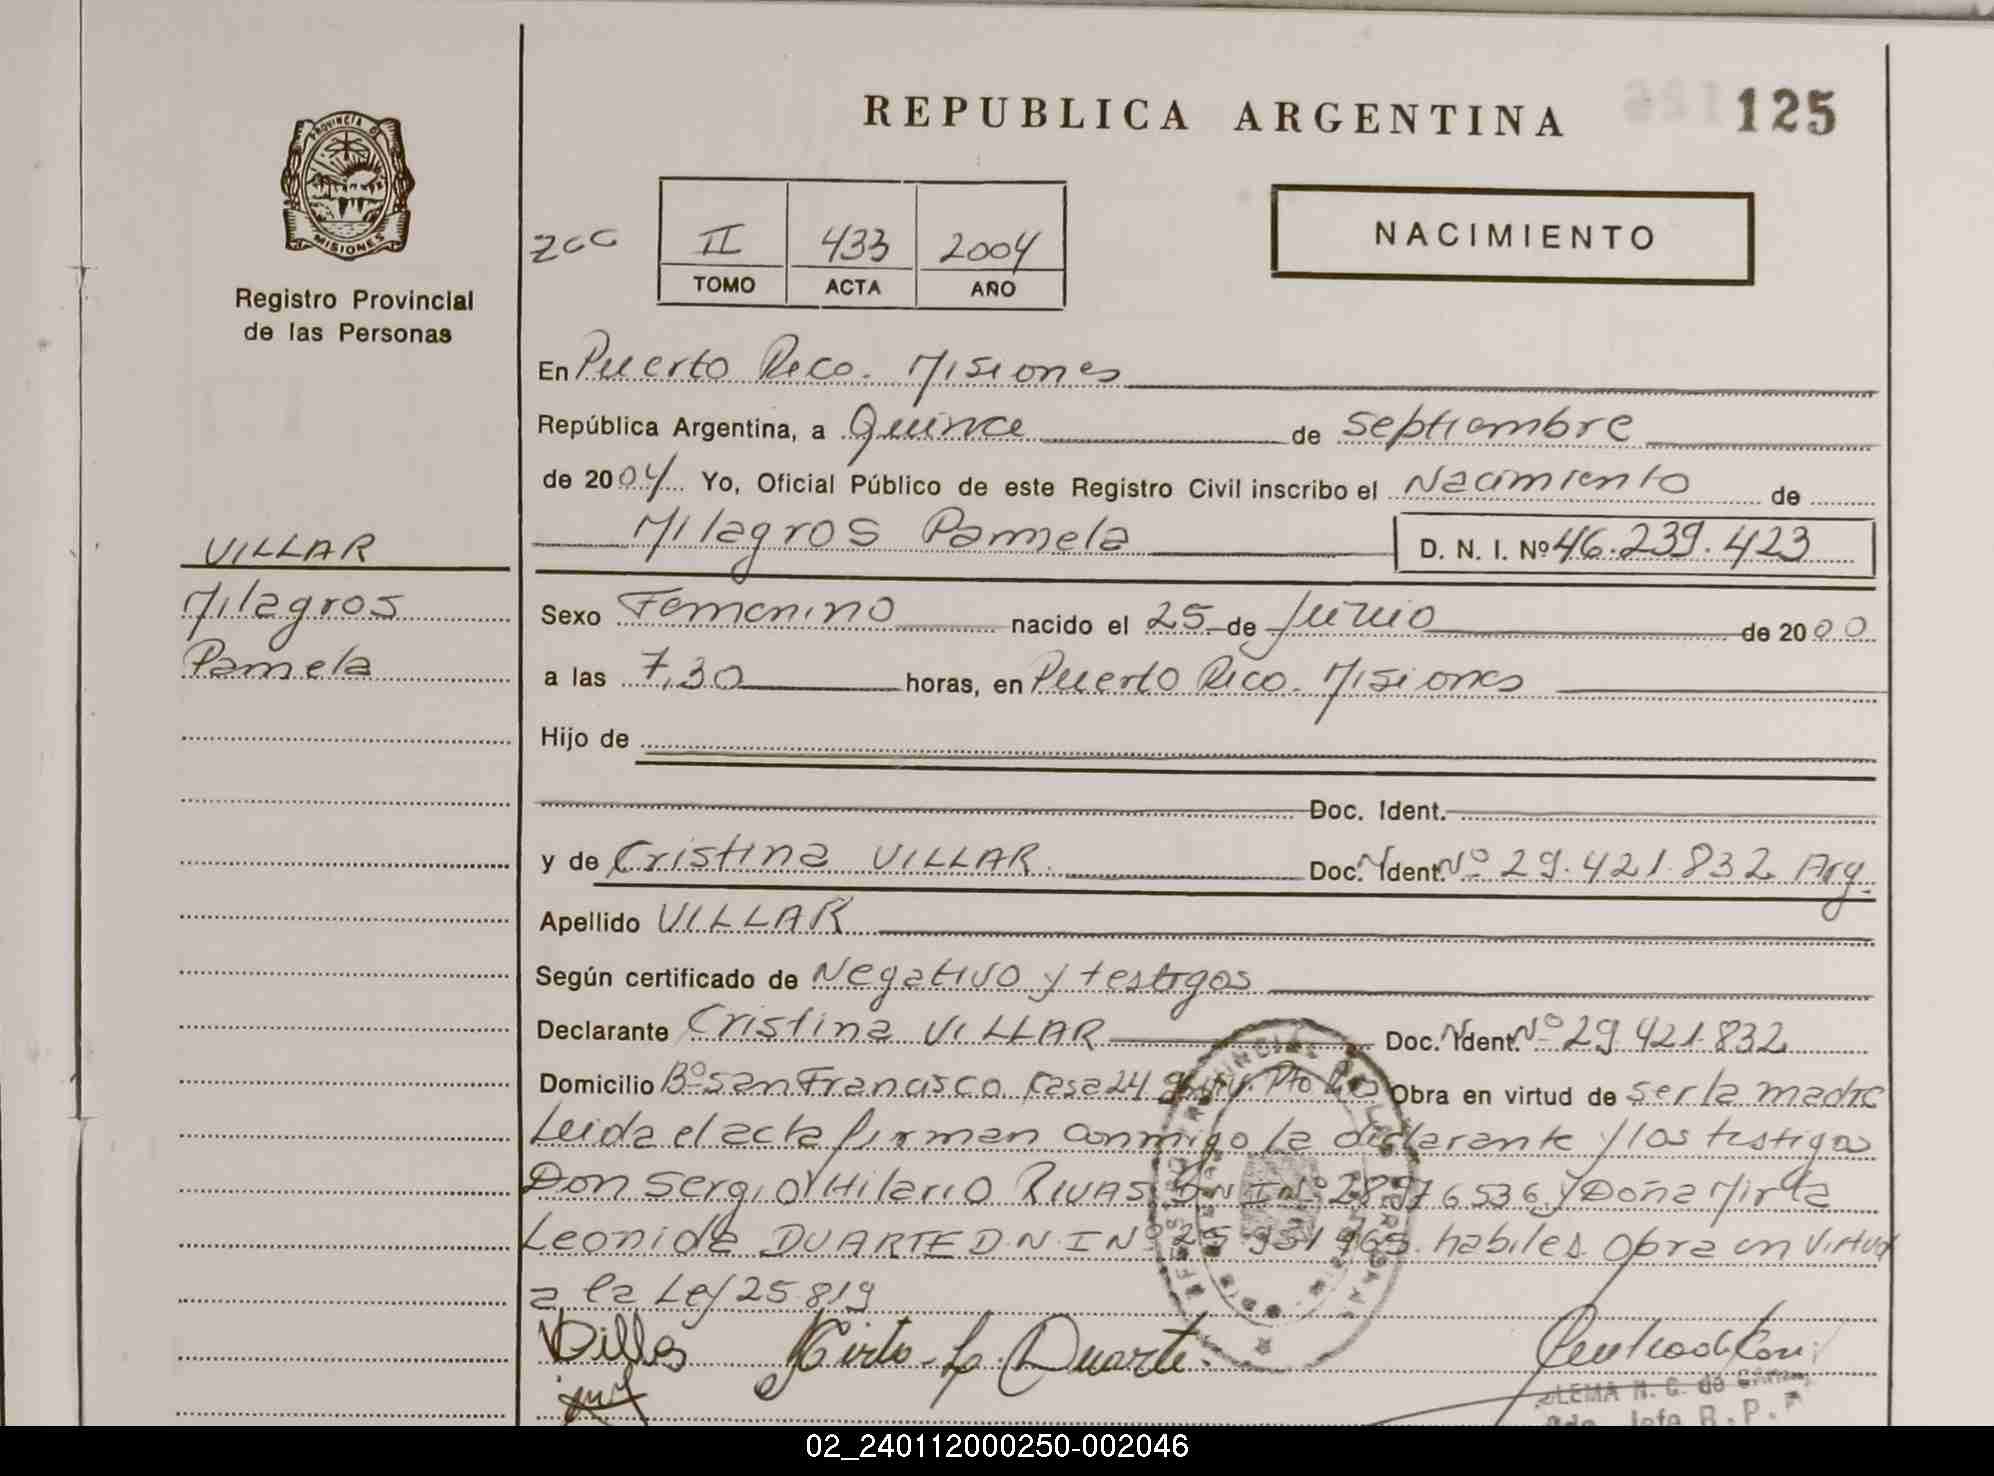 REPUBLICA ARGENTINA
125
PROVINCIA D
MISIONES
Registro Provincial
de las Personas
ZCC
II 433 2004
TOMO ACTA AÑO
NACIMIENTO
En Puerto Rico. Misiones
República Argentina, a Quince de Septiembre
de 2004 Yo, Oficial Público de este Registro Civil inscribo el Nacimiento de
Milagros Pamela D. N. I. Nº 46.239.423
VILLAR
Milagros
Pamela
Sexo Femenino nacido el 25 de Junio de 2000
a las 7,30 horas, en Puerto Rico. Misiones
Hijo de
Doc. Ident.
y de Cristina VILLAR. Doc. N Ident. Nº 29.421.832 Arg.
Apellido VILLAR
Según certificado de Negativo y testigos
Declarante Cristina VILLAR Doc. N Ident. Nº 29 421.832
Domicilio Bº San Francisco Casa 24 Pto Rico Obra en virtud de ser la madre
Leida el acta firman conmigo la declarante y los testigos
Don Sergio Hilario RIVAS DNI Nº 28976536 y Doña Mirta
Leonida DUARTE D.N.I Nº 25 931 965 habiles. Obra en virtud
a la Ley 25.819
Mirta L. Duarte.
ZLEMA N. G. de
Jefa R. P. P
02_240112000250-002046